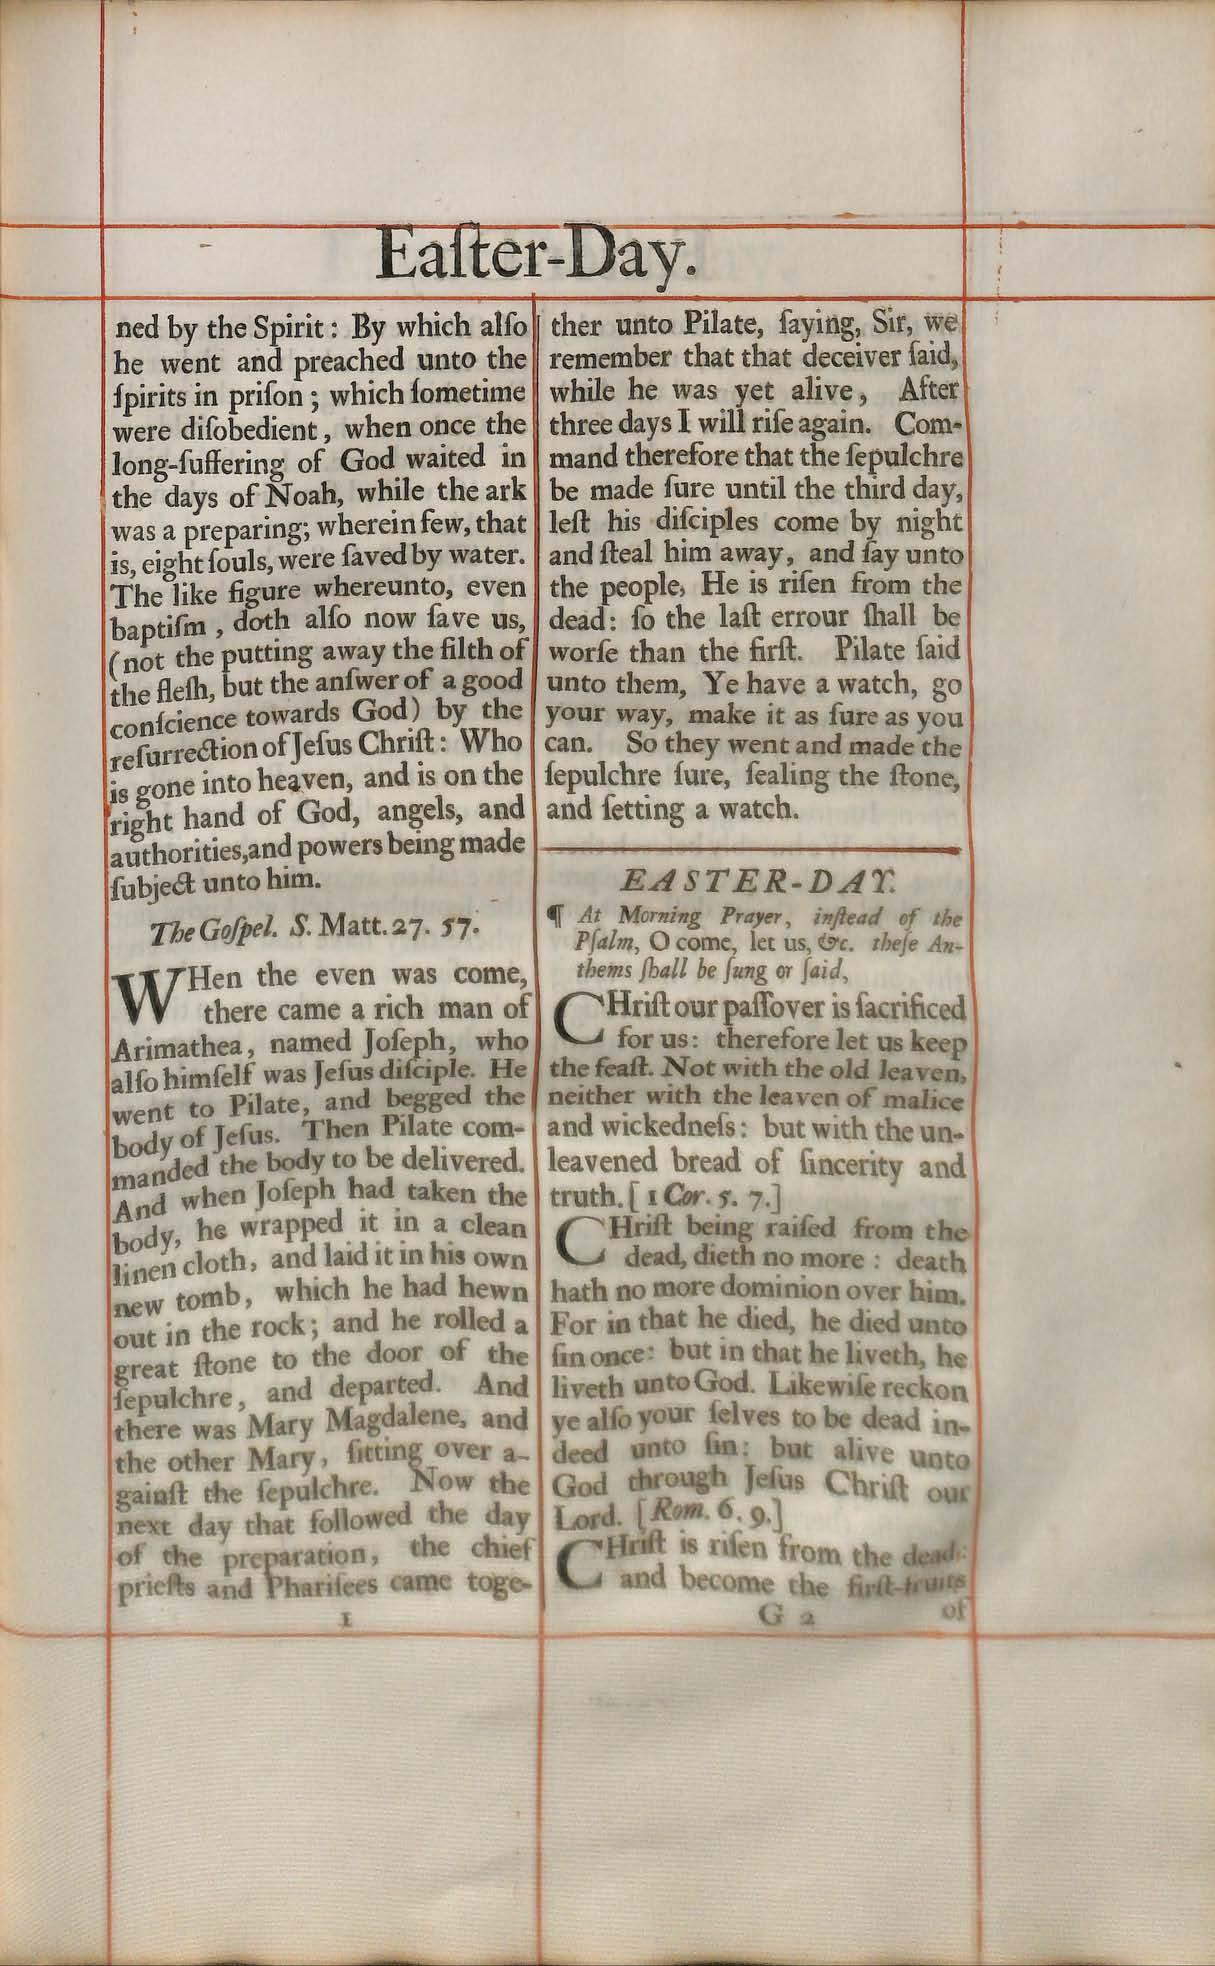 Eaſter-Day.
ned by the Spirit: By which alſo
he went and preached unto the
ſpirits in priſon; which ſometime
were diſobedient, when once the
long-ſuffering of God waited in
the days of Noah, while the ark
was a preparing; wherein few, that
is, eight ſouls, were ſaved by water.
The like figure whereunto, even
baptiſm, doth alſo now ſave us,
(not the putting away the filth of
the fleſh, but the anſwer of a good
conſcience towards God) by the
reſurrection of Jeſus Chriſt: Who
is gone into heaven, and is on the
right hand of God, angels, and
authorities, and powers being made
ſubject unto him.
The Goſpel. S. Matt. 27. 57.
WHen the even was come,
there came a rich man of
Arimathea, named Joſeph, who
alſo himſelf was Jeſus diſciple. He
went to Pilate, and begged the
body of Jeſus. Then Pilate com-
manded the body to be delivered.
And when Joſeph had taken the
body, he wrapped it in a clean
linen cloth, and laid it in his own
new tomb, which he had hewn
out in the rock; and he rolled a
great ſtone to the door of the
ſepulchre, and departed. And
there was Mary Magdalene, and
the other Mary, ſitting over a-
gainſt the ſepulchre. Now the
next day that followed the day
of the preparation, the chief
prieſts and Phariſees came toge-
1
ther unto Pilate, ſaying, Sir, we
remember that that deceiver ſaid,
while he was yet alive, After
three days I will riſe again. Com-
mand therefore that the ſepulchre
be made ſure until the third day,
leſt his diſciples come by night
and ſteal him away, and ſay unto
the people, He is riſen from the
dead: ſo the laſt errour ſhall be
worſe than the firſt. Pilate ſaid
unto them, Ye have a watch, go
your way, make it as ſure as you
can. So they went and made the
ſepulchre ſure, ſealing the ſtone,
and ſetting a watch.
EASTER-DAY.
¶ At Morning Prayer, inſtead of the
Pſalm, O come, let us, &c. theſe An-
thems ſhall be ſung or ſaid,
CHriſt our paſſover is ſacrificed
for us: therefore let us keep
the feaſt. Not with the old leaven,
neither with the leaven of malice
and wickedneſs: but with the un-
leavened bread of ſincerity and
truth. [1 Cor. 5. 7.]
CHriſt being raiſed from the
dead, dieth no more: death
hath no more dominion over him.
For in that he died, he died unto
ſin once: but in that he liveth, he
liveth unto God. Likewiſe reckon
ye alſo your ſelves to be dead in-
deed unto ſin: but alive unto
God through Jeſus Chriſt our
Lord. [Rom. 6. 9.]
CHriſt is riſen from the dead:
and become the firſt-fruits
G 2 of